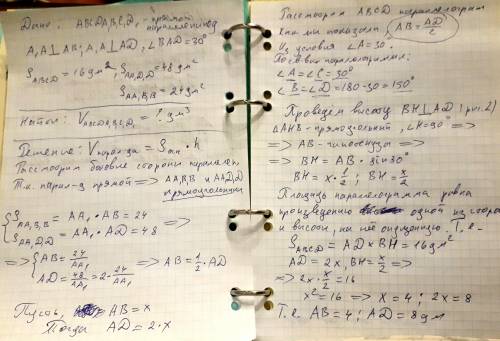 Дано: ABCDA₁B₁C₁D₁ - прямой
параллелепипед
A₁A⊥AB; A₁A⊥AD; ∠BAD=30°
S_ABCD = 16 дм²; S_AA₁D₁D = 48 дм²
S_AA₁B₁B = 24 дм²
Найти: V_ABCDA₁B₁C₁D₁ = ? дм³
Решение: V = S · h
Рассмотрим боковые стороны паралел.
Т.к. парал-д прямой ⟹ AA₁B₁B и AA₁D₁D
прямоугольники
{ S_AA₁B₁B = AA₁ · AB = 24
S_AA₁D₁D = AA₁ · AD = 48 ⟹
⟹ { AB = 24/AA₁
AD = 48/AA₁ = 2 · 24/AA₁ ⟹ AB = 1/2 · AD
Пусть, AB = x
Тогда AD = 2·x
Рассмотрим ABCD параллелограм
как мы показали AB = AD/2
Из условия ∠A = 30°.
∠A = ∠C = 30°
∠B = ∠D = 180-30 = 150°
Проведём высоту BH⊥AD (рис. 2)
△AHB - прямоугольный, ∠H=90° ⟹
⟹ AB - гипотенуза ⟹
⟹ BH = AB · sin 30°
BH = x · 1/2; BH = x/2
Площадь параллелограмма равна
произведению одной из сторон
и высоты, на неё опущенную. Т.е.
S_ABCD = AD × BH = 16 дм²
AD = 2x, BH = x/2 ⟹
⟹ 2x · x/2 = 16
x² = 16 ⟹ x = 4; 2x = 8
Т.е. AB = 4; AD = 8 дм